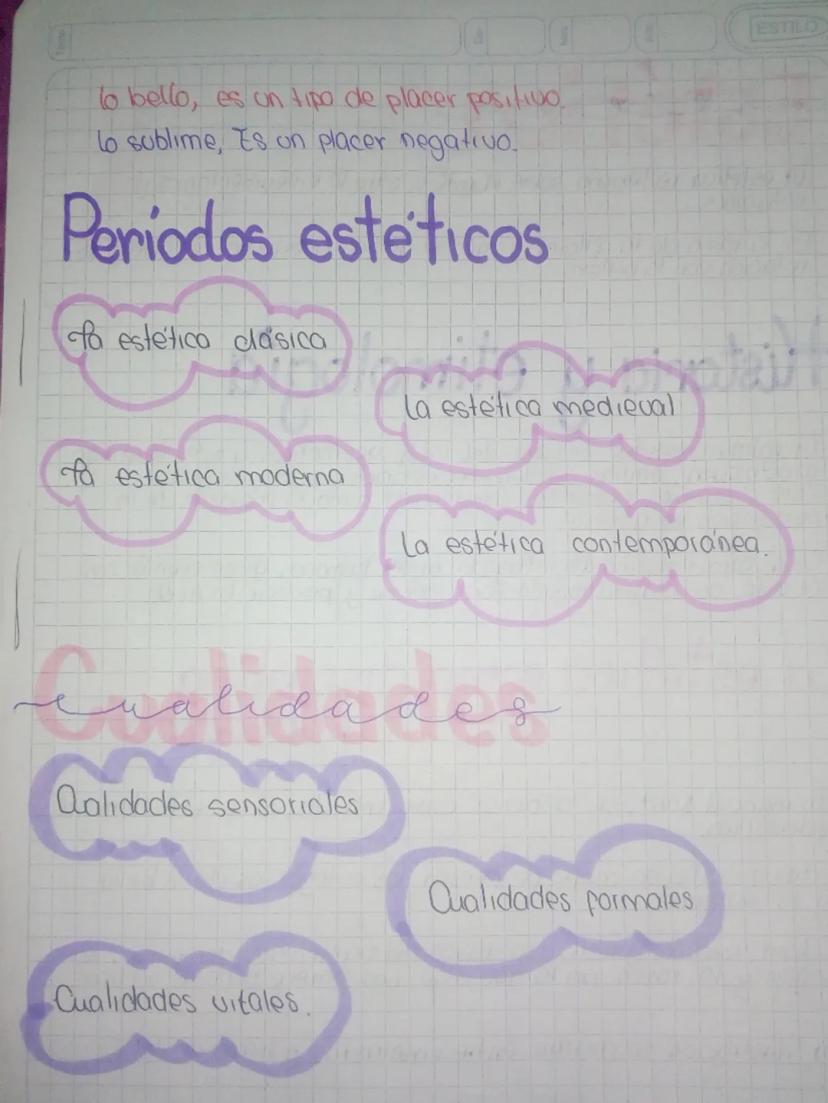 ESTILO
lo bello, es un tipo de placer positivo.
lo sublime, Es un placer negativo.
Períodos estéticos
La estético clásica
La estética medieval
La estética moderna
La estética contemporánea.
Cualidades
Cualidades sensoriales
Cualidades formales
Cualidades vitales.